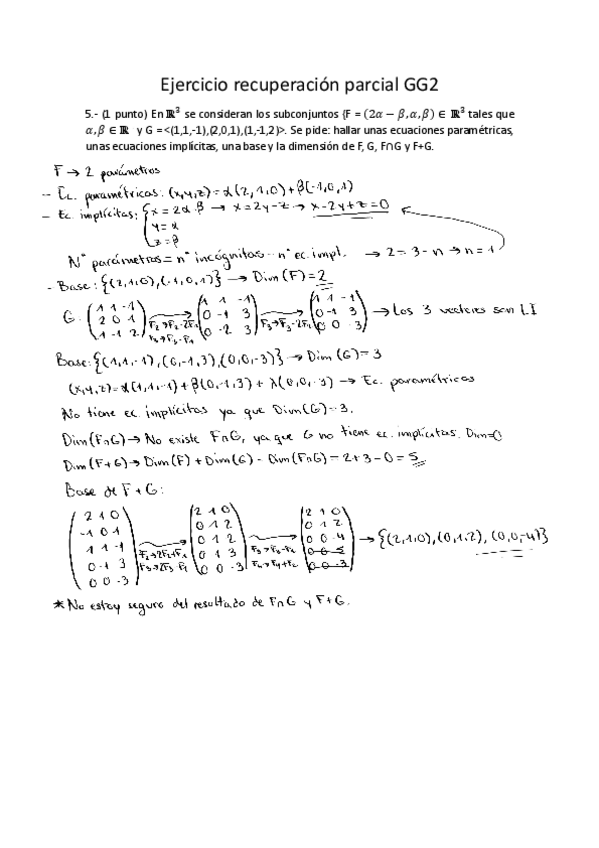 Ejercicio recuperación parcial GG2
5.- (1 punto) En ℝ³ se consideran los subconjuntos {F = (2α − β, α, β) ∈ ℝ³ tales que
α, β ∈ ℝ y G =<(1,1,-1),(2,0,1),(1,-1,2)>. Se pide: hallar unas ecuaciones paramétricas,
unas ecuaciones implícitas, una base y la dimensión de F, G, F∩G y F+G.
F → 2 parámetros
- Ec. paramétricas: (x,y,z) = α(2,1,0) + β(-1,0,1)
- Ec. implícitas: { x = 2α-β → x = 2y-z → x-2y+z=0
y = α
z = β
Nº parámetros = nº incógnitas - nº ec. impl. → 2 = 3 - n → n = 1
- Base: {(2,1,0), (-1,0,1)} → Dim(F) = 2
G. (1 1 -1) (1 1 -1) (1 1 -1)
(2 0 1) F₂→F₂-2F₁ (0 -1 3) F₃→F₃-2F₂ (0 -1 3) → Los 3 vectores son LI
(1 -1 2) F₃→F₃-F₁ (0 -2 3) (0 0 -3)
Base: {(1,1,-1), (0,-1,3), (0,0,-3)} → Dim (G) = 3
(x,y,z) = α(1,1,-1) + β(0,-1,3) + λ(0,0,-3) → Ec. paramétricas
No tiene ec. implícitas ya que Dim(G) = 3.
Dim(F∩G) → No existe F∩G, ya que G no tiene ec. implícitas. Dim=0
Dim (F+G) → Dim(F) + Dim(G) - Dim(F∩G) = 2+3-0 = 5
Base de F+G:
(2 1 0) (2 1 0) (2 1 0)
(-1 0 1) (0 1 2) (0 1 2)
(1 1 -1) F₂→2F₂+F₁ (0 1 2) F₃→F₃-F₂ (0 0 -4) → {(2,1,0), (0,1,2), (0,0,-4)}
(0 -1 3) F₃→2F₃-F₁ (0 1 3) F₄→F₄+F₂ (0 0 5)
(0 0 -3) (0 0 -3) (0 0 -3)
* No estoy seguro del resultado de F∩G y F+G.